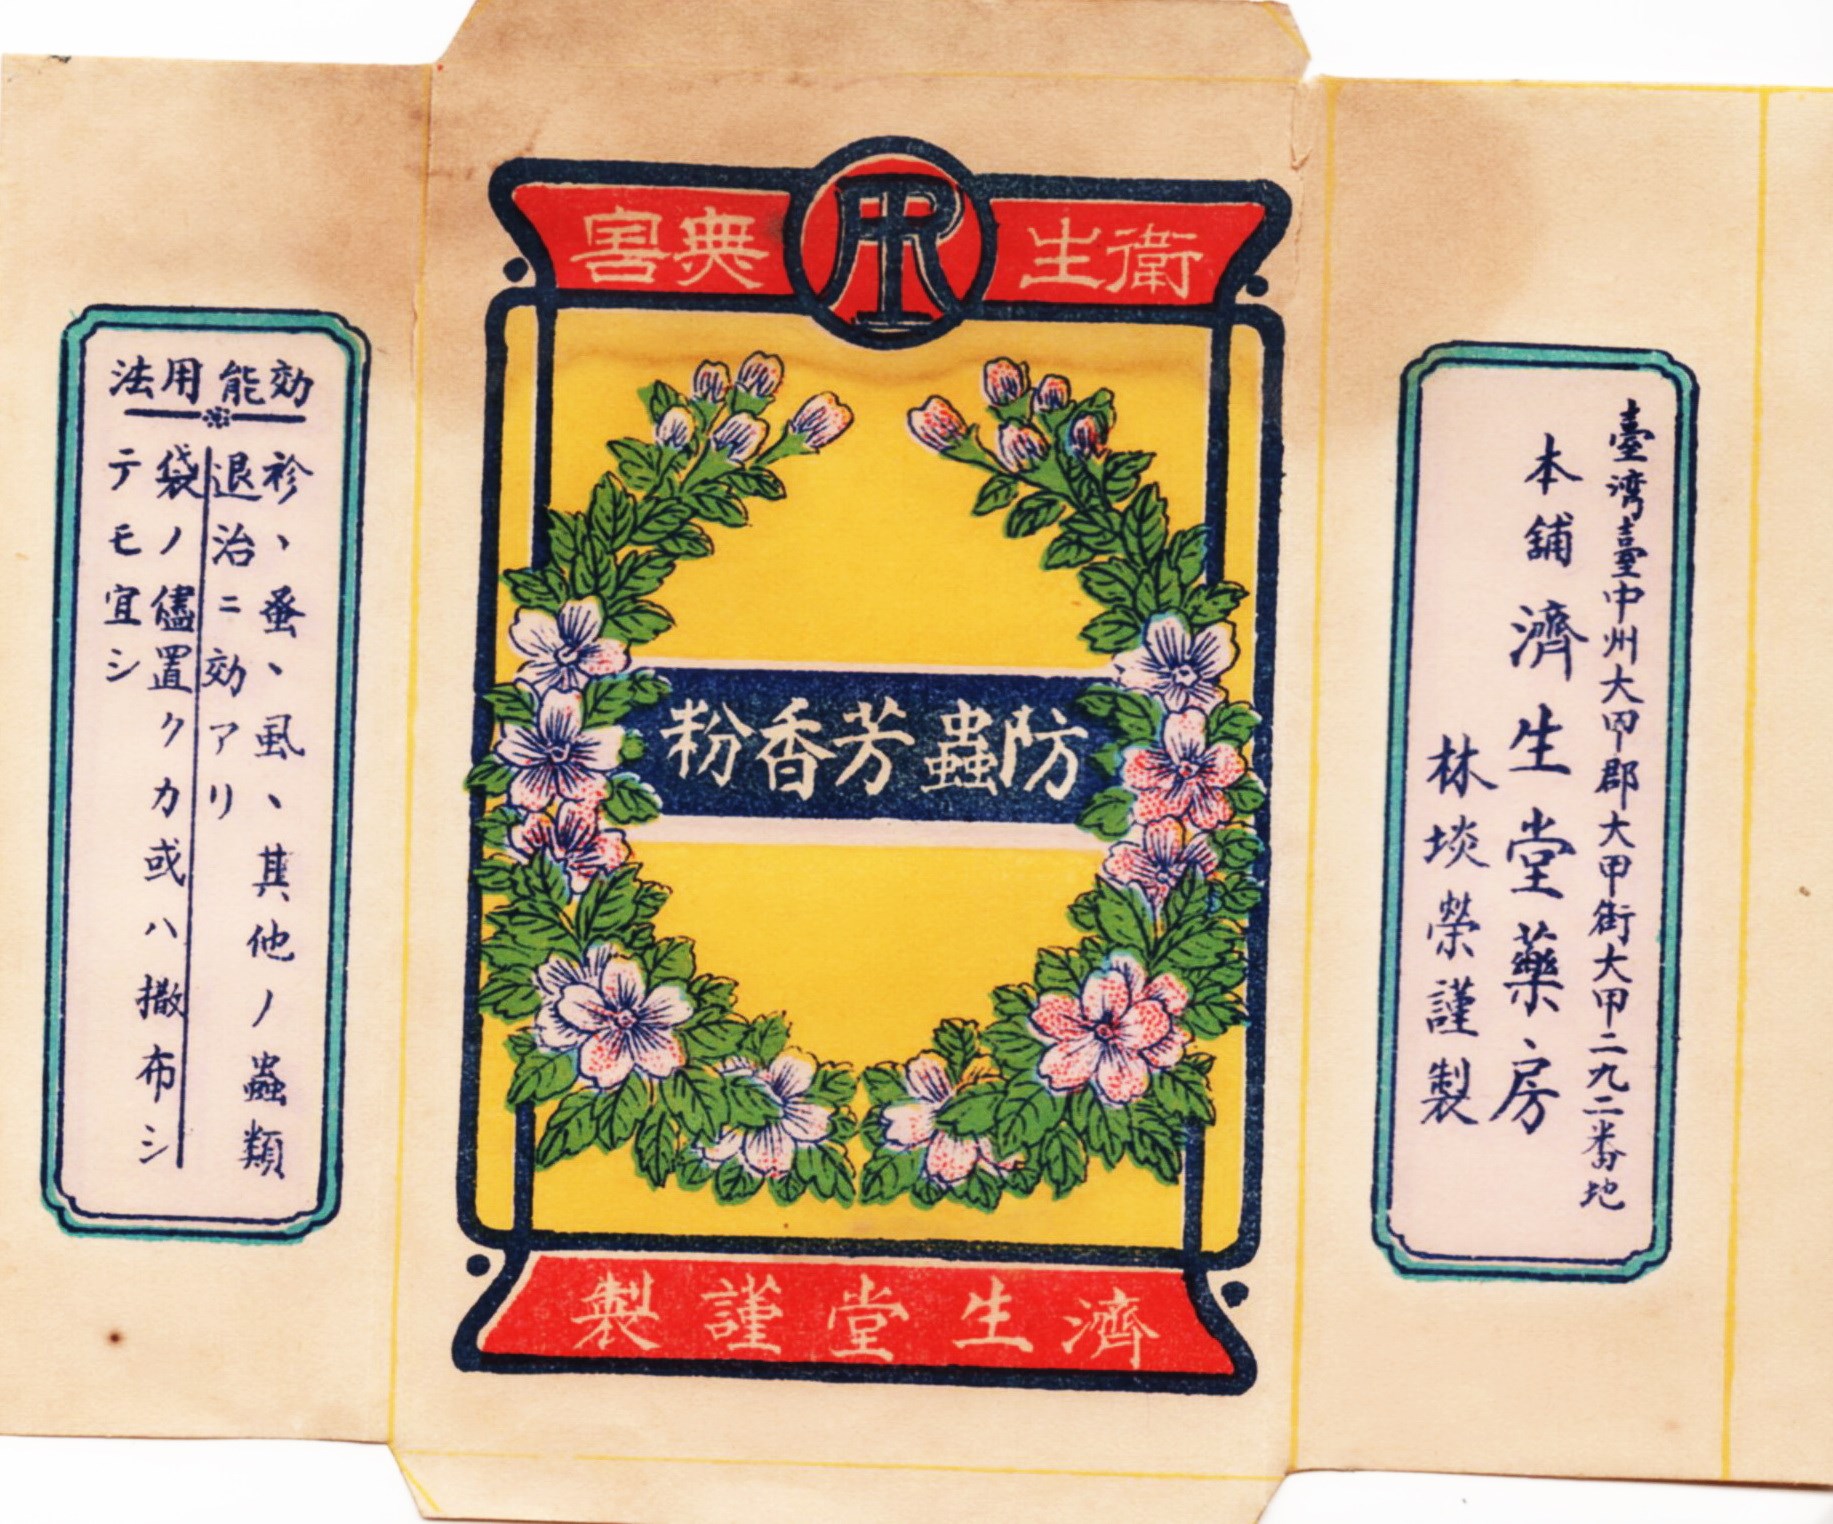 衛生 無害
防蟲芳香粉
濟生堂謹製
効能用法
袗、蚤、虱、其他ノ蟲類
退治ニ効アリ
袋ノ儘置クカ或ハ撒布シ
テモ宜シ
臺湾臺中州大甲郡大甲街大甲二九二番地
本舖 濟生堂藥房
林埮榮謹製